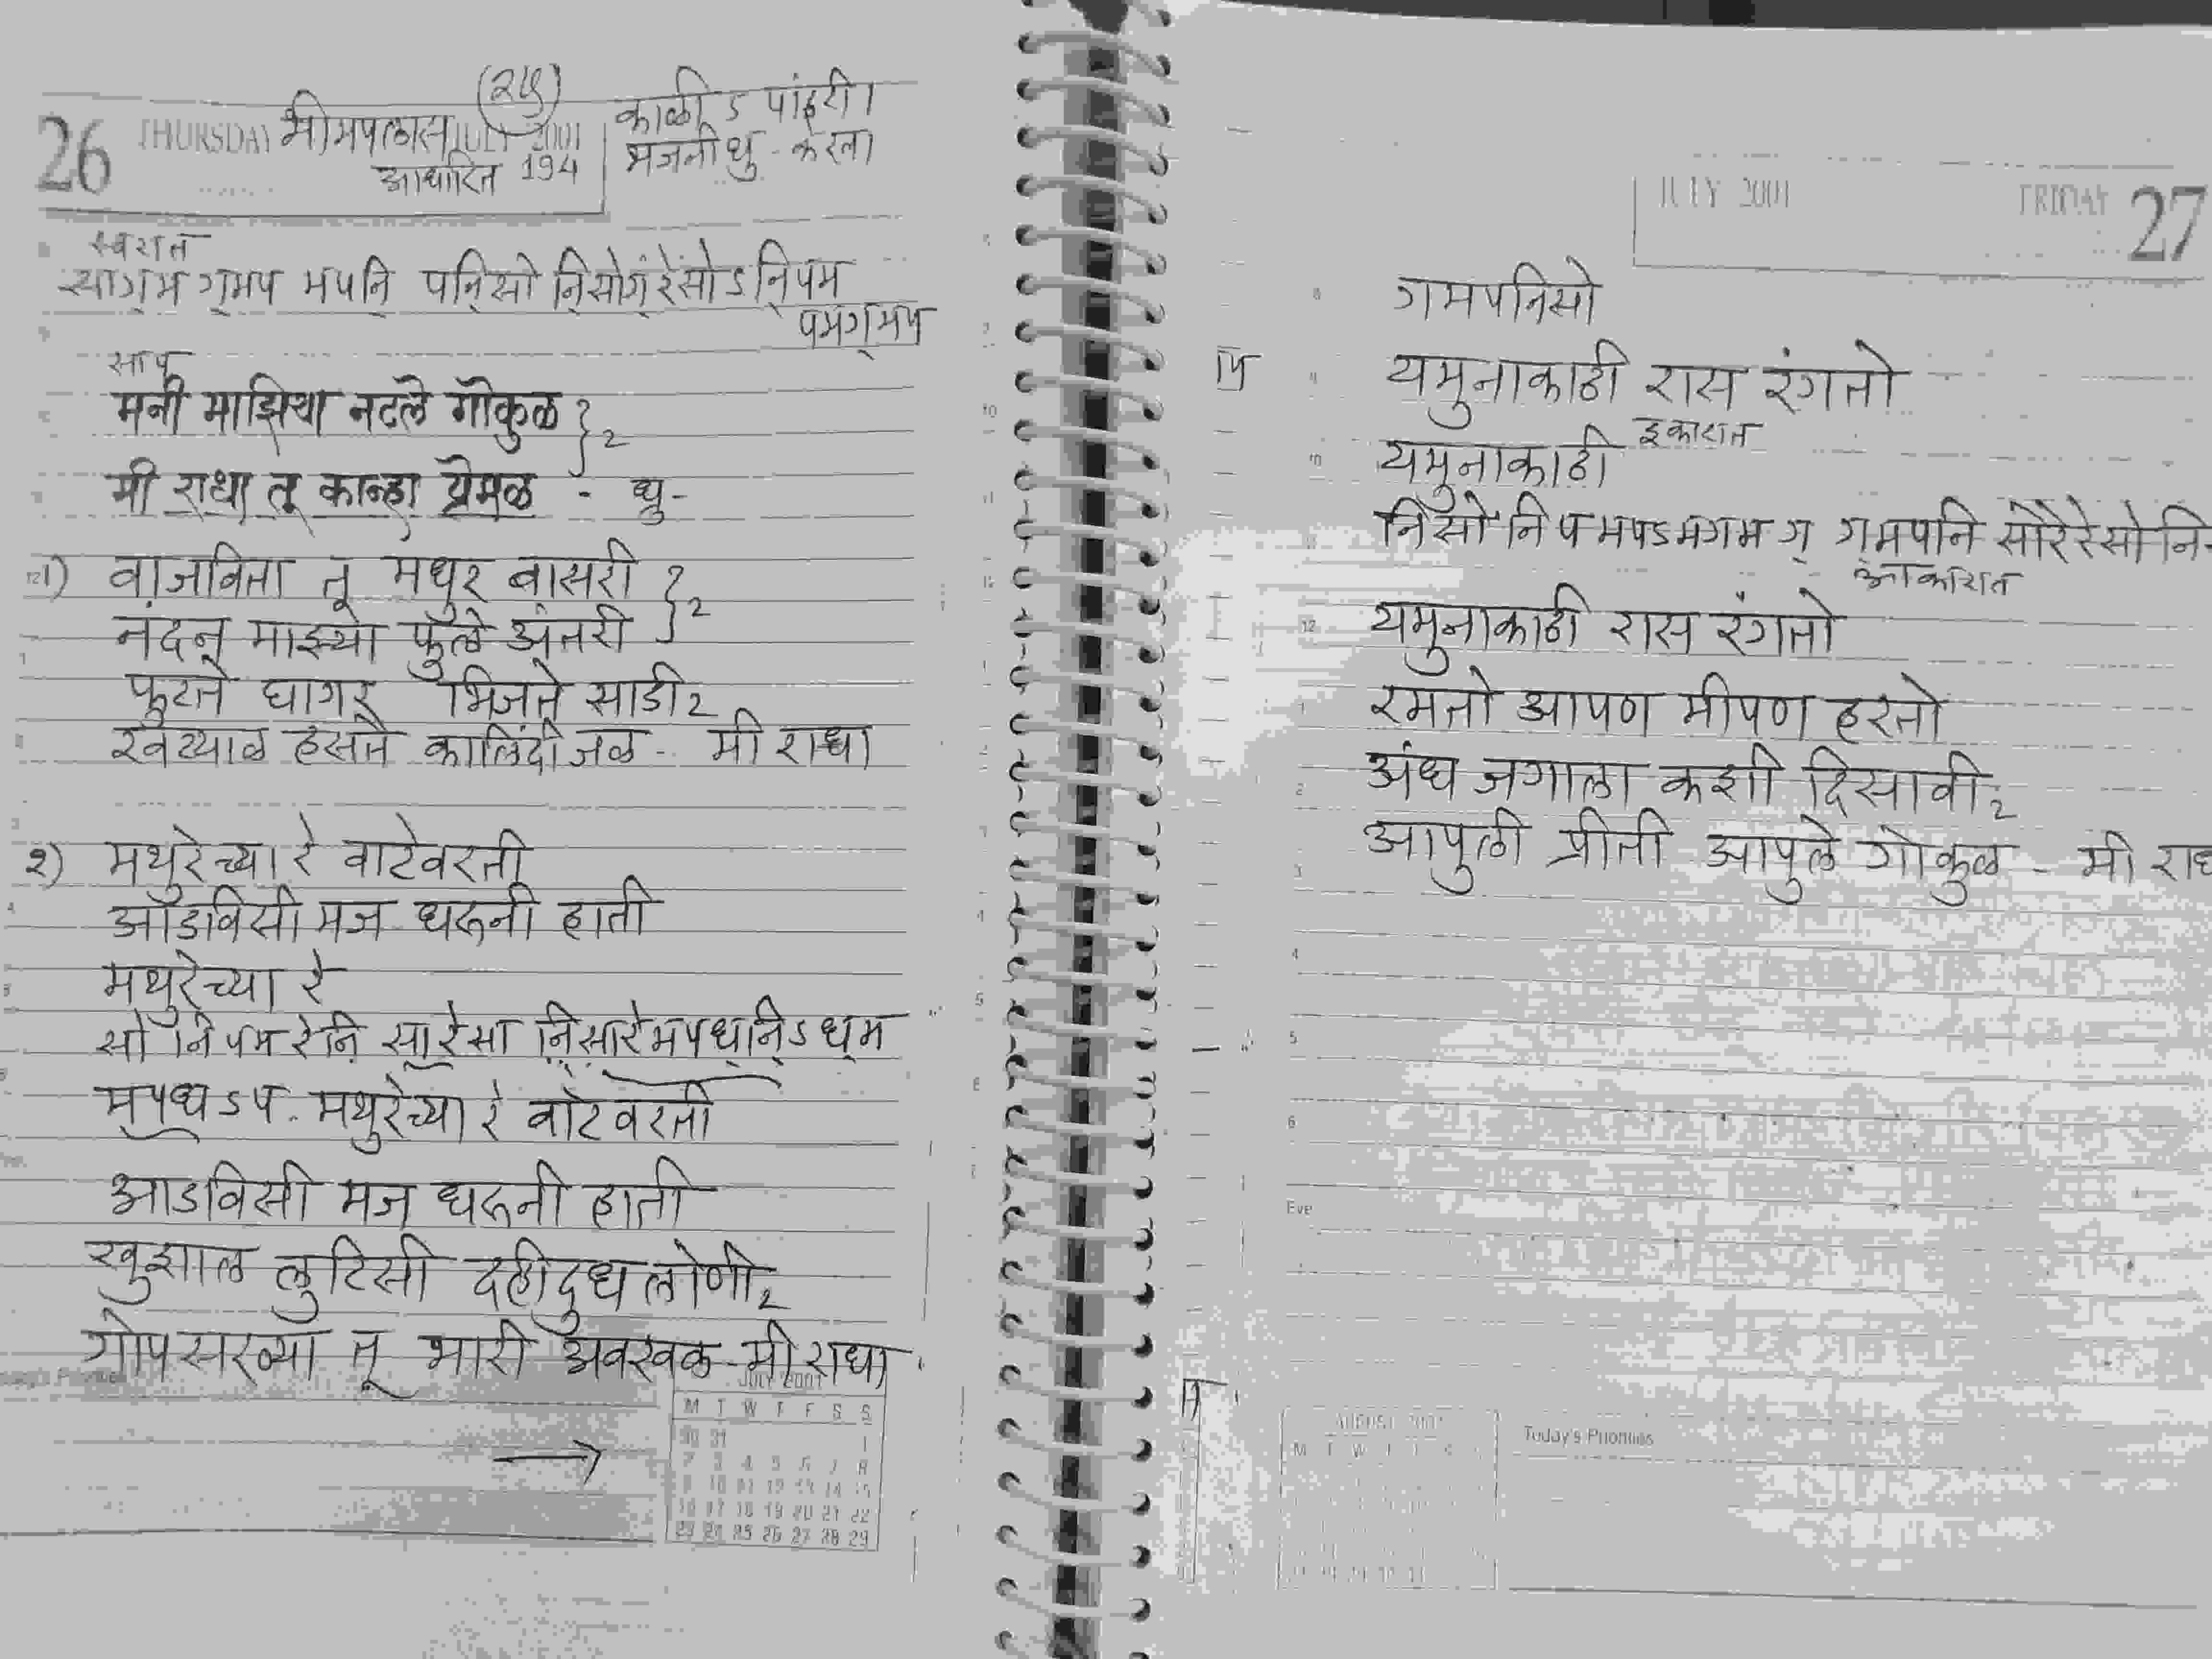 (२५)
26 THURSDAY भीमपलास JULY 2001
आधारित 194
काळी ऽ पांढरी १
भजनी धु - केरवा
स्वरात
साग्म ग्मप मपनि् पनि्सो नि्सोगं्रेंसोऽनि्पम
पमग्मप
साप
मनी माझिया नटले गोकुळ } 2
मी राधा तू कान्हा प्रेमळ - धु -
१) वाजविता तू मधुर बासरी } 2
नंदन माझ्या फुले अंतरी
फुटते घागर भिजते साडी 2
खट्याळ हसते कालिंदी जळ - मी राधा
२) मथुरेच्या रे वाटेवरती
आडविसी मज धरूनी हाती
मथुरेच्या रे
सो नि पम रेनि़ सा रेसा नि़सारेमपध्नि्ऽ ध्म
मपधऽप. मथुरेच्या रे वाटेवरती
आडविसी मज धरूनी हाती
खुशाल लुटिसी दहीदुध लोणी 2
गोपसख्या तू भारी अवखळ - मी राधा
→
JULY 2001
M T W T F S S
30 31 1
2 3 4 5 6 7 8
9 10 11 12 13 14 15
16 17 18 19 20 21 22
23 24 25 26 27 28 29
JULY 2001 FRIDAY 27
गमपनिसो
यमुनाकाठी रास रंगतो
इकारात
यमुनाकाठी
निसो नि प मपऽमगम ग् ग्मपनि सोरेंरेंसो नि-
आकारात
यमुनाकाठी रास रंगतो
रमतो आपण मीपण हरतो
अंध जगाला कशी दिसावी 2
आपुली प्रीती आपुले गोकुळ - मी राध
4
5
6
Eve
AUGUST 2001
Today's Priorities